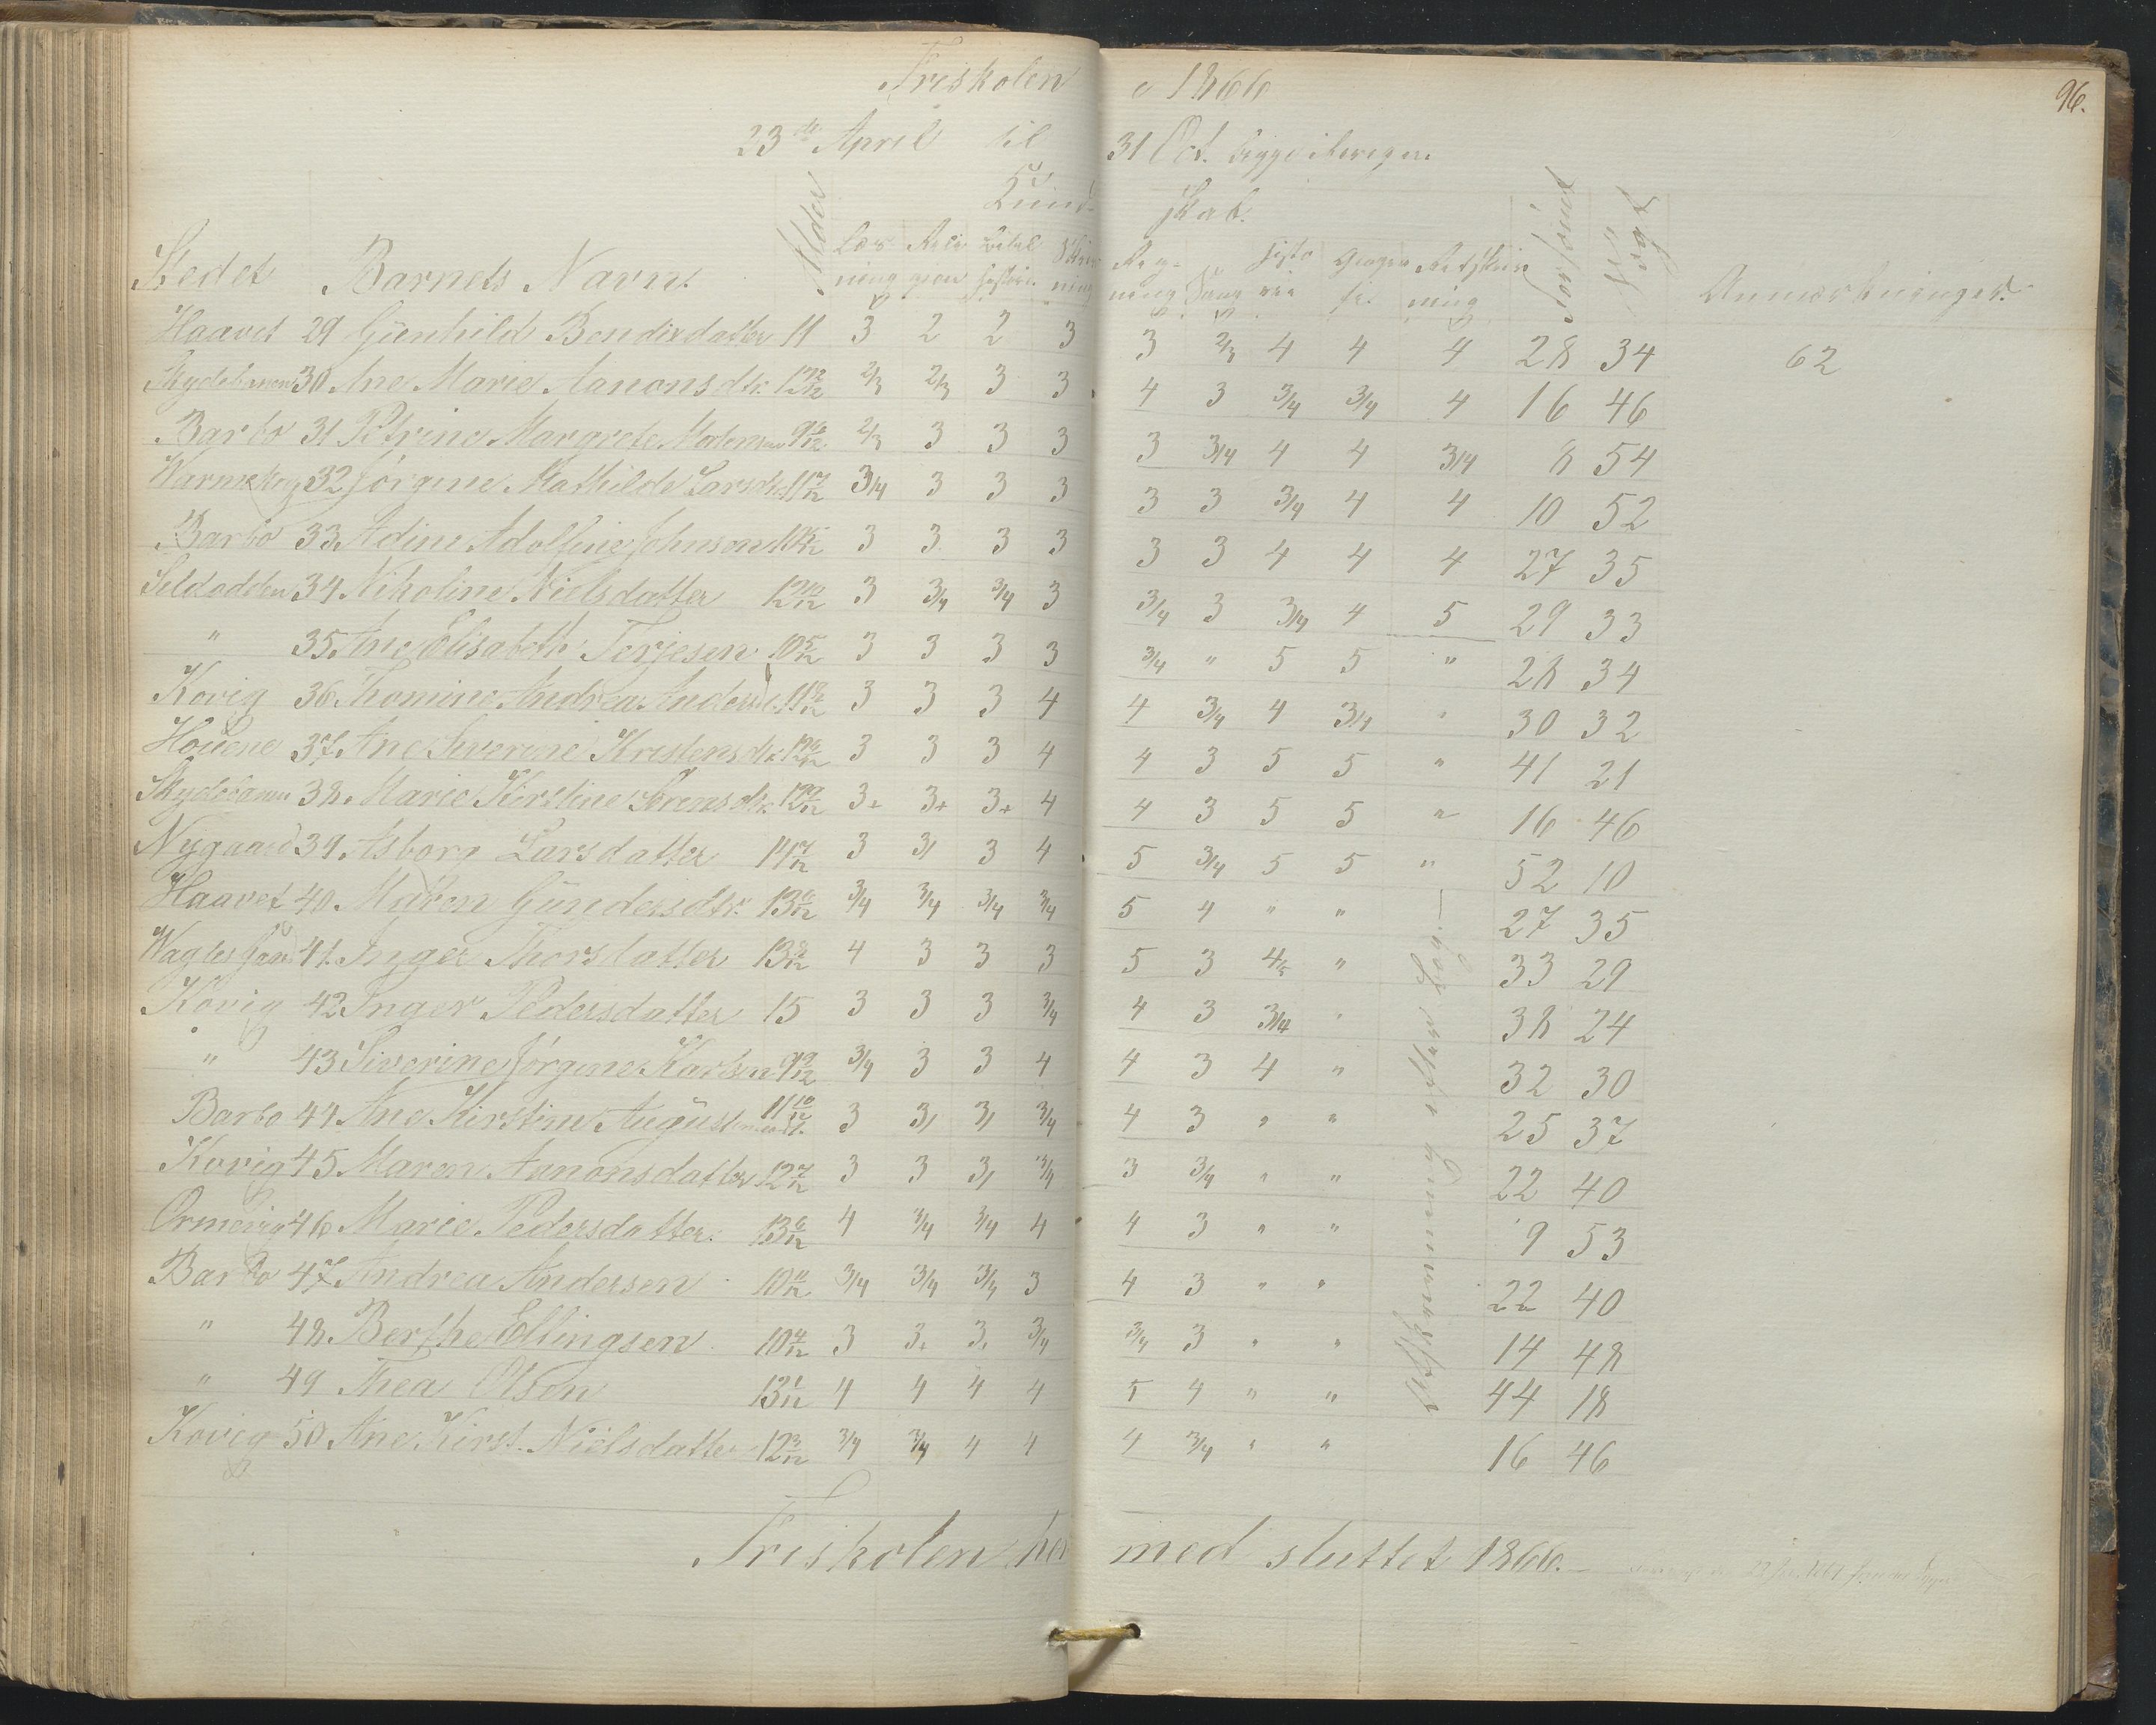 Friskolen i 1866 96.
23de April til 31 Oct. begge iberegn.
Kundskab.
Stedet Barnets Navn. Alder Læsning Religion Bibelhistorie Skrivning Regning Sang Historie Geografi Retskrivning Forsømt Søgt Anmærkninger.
Haavet 29 Gunhild Bendixdatter 11 3 2 2 3 3 2/3 4 4 4 28 34 62
Skydebanen 30 Ane Marie Aanonsdtr. 12 2/3 2/3 3 3 4 3 3/4 3/4 4 16 46
Barbo 31 Petrine Margrete 9 6/12 2/3 3 3 3 3 3/4 4 4 3/4 8 54
32 Jörgine Mathilde Larsdtr. 11 7/12 3/4 3 3 3 3 3 3/4 4 4 10 52
Barbo 33 Adine Adolfine Johnson 3 3 3 3 3 3 4 4 4 27 35
Sildodden 34 Nikoline Nielsdatter 12 10/12 3 3/4 3/4 3 3/4 3 3/4 4 5 29 33
" 35 Ane Elisabeth Terjesen 10 5/12 3 3 3 3 3/4 " 5 5 " 28 34
Kovig 36. Thomine Andrea Andersd. 11 8/12 3 3 3 4 4 3/4 4 3/4 " 30 32
Houene 37. Ane Severine Kristensdtr. 3 3 3 4 4 3 5 5 " 41 21
Skydebanen 38. Marie Kirstine Sörensdtr. 3+ 3+ 3+ 4 4 3 5 5 " 16 46
Nygaard 39. Asborg Larsdatter 11 7/12 3 3/ 3 4 5 3/4 5 5 " 52 10
Haavet 40. Maren Gundersdtr. 13 6/12 3/4 3/4 3/4 3/4 5 4 " " 27 35
41. Inger Thorsdatter 13 8/12 4 3 3 3 5 3 4/5 " 33 29
Kovig 42 Inger Pedersdatter 15 3 3 3 3/4 4 3 3/4 " 38 24
" 43 Siverine Jörgine Karlsen 9 9/12 3/4 3 3 4 4 3 4 " 32 30
Barbo 44 Ane Kirstine 11 10/12 3 3/ 3/ 3/4 4 3 " " 25 37
Kovig 45 Maren Aanonsdatter 12 7/12 3 3 3/ 3/4 3 3/4 " " 22 40
46 Marie Pedersdatter. 13 6/12 4 3/4 3/4 4 4 3 " " 9 53
Barbo 47 Andrea Andersen 10 11/12 3/4 3/4 3/4 3 4 3 " " 22 40
" 48 Berthe Ellingsen 10 4/12 3 3. 3. 3/4 3/4 3 " " 14 48
" 49 Thea Olson 13 1/12 4 4 4 4 5 4 " " 44 18
Kovig 50 Ane Kirst. Nielsdatter 12 3/12 3/4 3/4 4 4 4 3/4 " " 16 46
Friskolen hermed sluttet 1866.